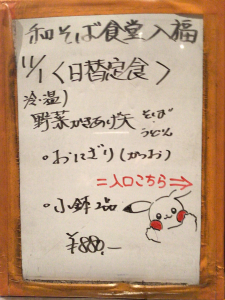 和そば食堂 入福
11/1〈日替定食〉
冷・温)
野菜かきあげ天 そば
うどん
・おにぎり(かつお)
=入口こちら⇒
・小鉢2品
¥880.-